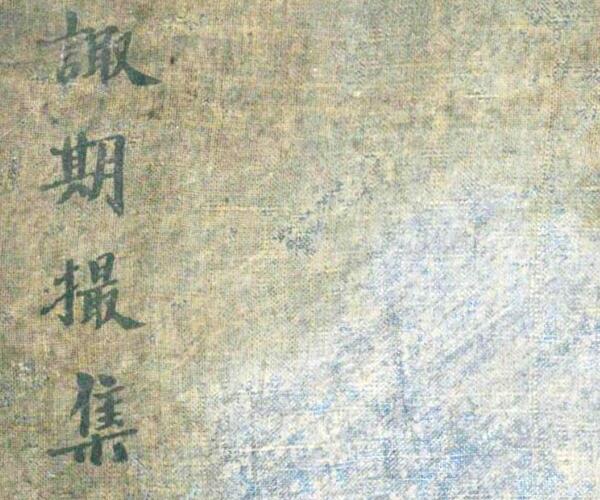 諏期撮集